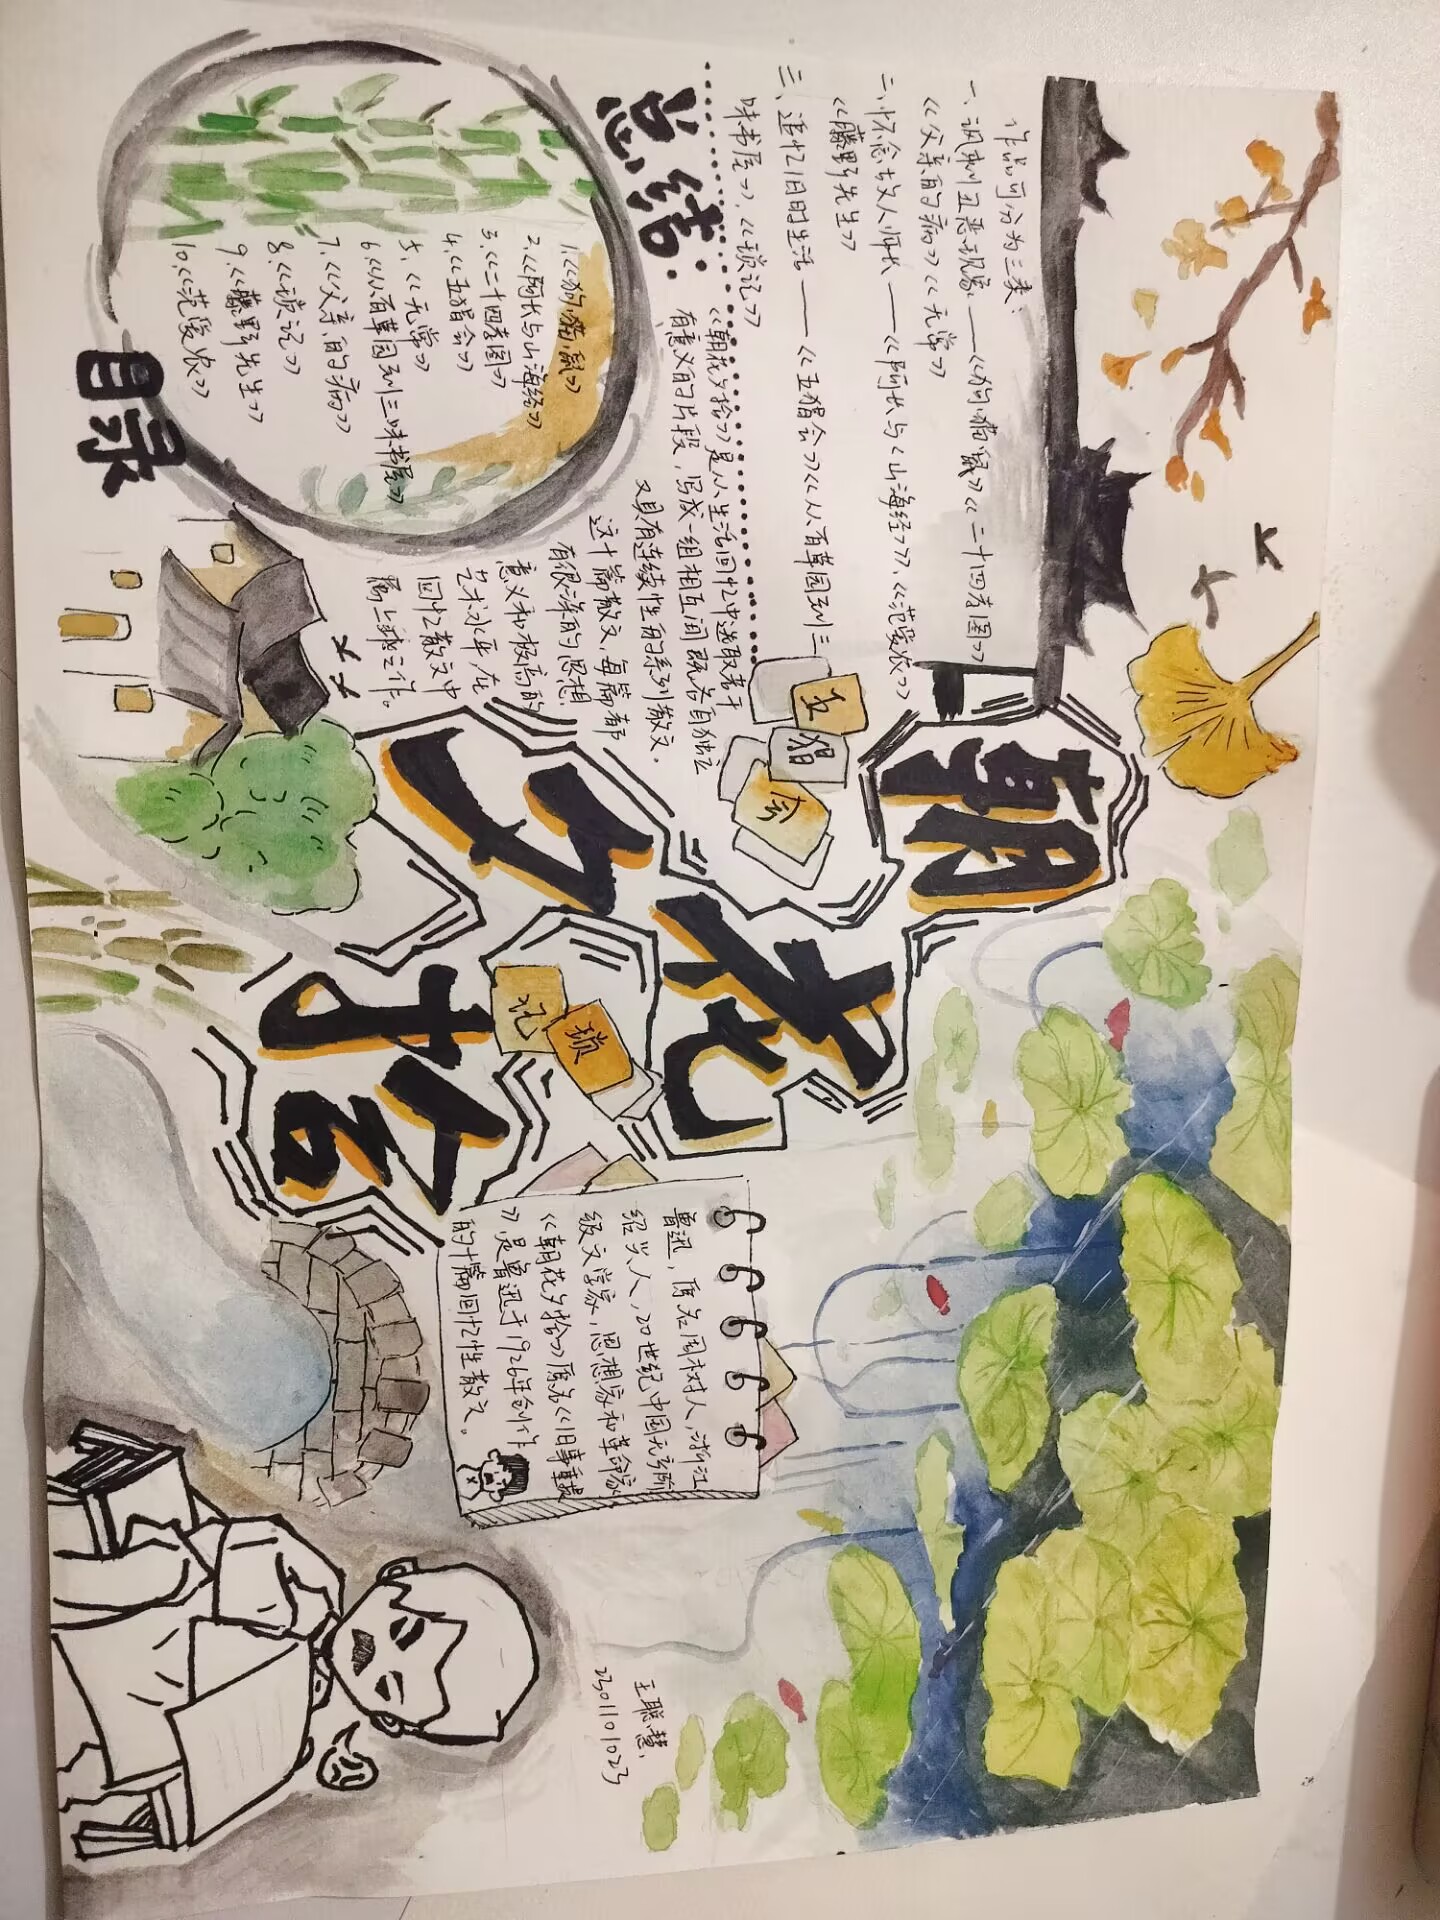 作品可分为三类:
一、讽刺丑恶现象——《狗·猫·鼠》《二十四孝图》
《父亲的病》《无常》
二、怀念故人师长——《阿长与《山海经》》、《范爱农》
《藤野先生》
三、追忆旧时生活——《五猖会》《从百草园到三
味书屋》、《琐记》
总结:
《朝花夕拾》是从生活回忆中选取若干
有意义的片段,写成一组相互间既各自独立
又具有连续性的系列散文.
这十篇散文,每篇都
有很深的思想
意义和极高的
艺术水平,在
回忆散文中
属上乘之作。
1.《狗·猫·鼠》
2.《阿长与山海经》
3.《二十四孝图》
4.《五猖会》
5.《无常》
6.《从百草园到三味书屋》
7.《父亲的病》
8.《琐记》
9.《藤野先生》
10.《范爱农》
目录
朝
花
夕
拾
五
猖
会
琐
记
鲁迅,原名周树人,浙江
绍兴人,20世纪中国无产阶
级文学家,思想家和革命家
《朝花夕拾》原名《旧事重提
》是鲁迅于1926年创作
的十篇回忆性散文。
王聪慧.
2301101023